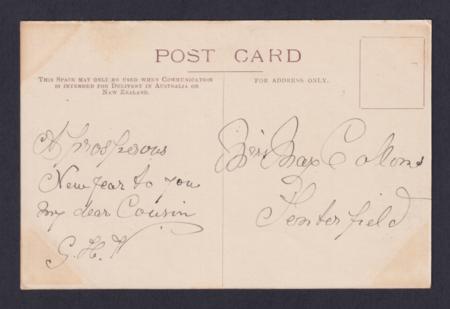 POST CARD
THIS SPACE MAY ONLY BE USED WHEN COMMUNICATION
IS INTENDED FOR DELIVERY IN AUSTRALIA OR
NEW ZEALAND.
FOR ADDRESS ONLY.
A prosperous
New Year to you
my dear Cousin
G. H.
Miss
Tenterfield